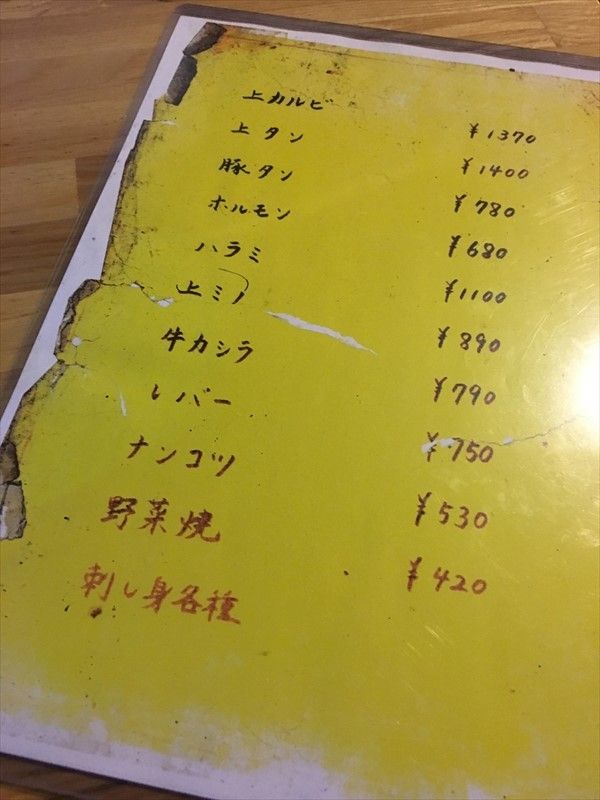 上カルビ ¥1370
上タン ¥1400
豚タン ¥780
ホルモン ¥680
ハラミ ¥1100
上ミノ ¥890
牛カシラ ¥790
レバー ¥750
ナンコツ ¥530
野菜焼 ¥420
刺し身各種